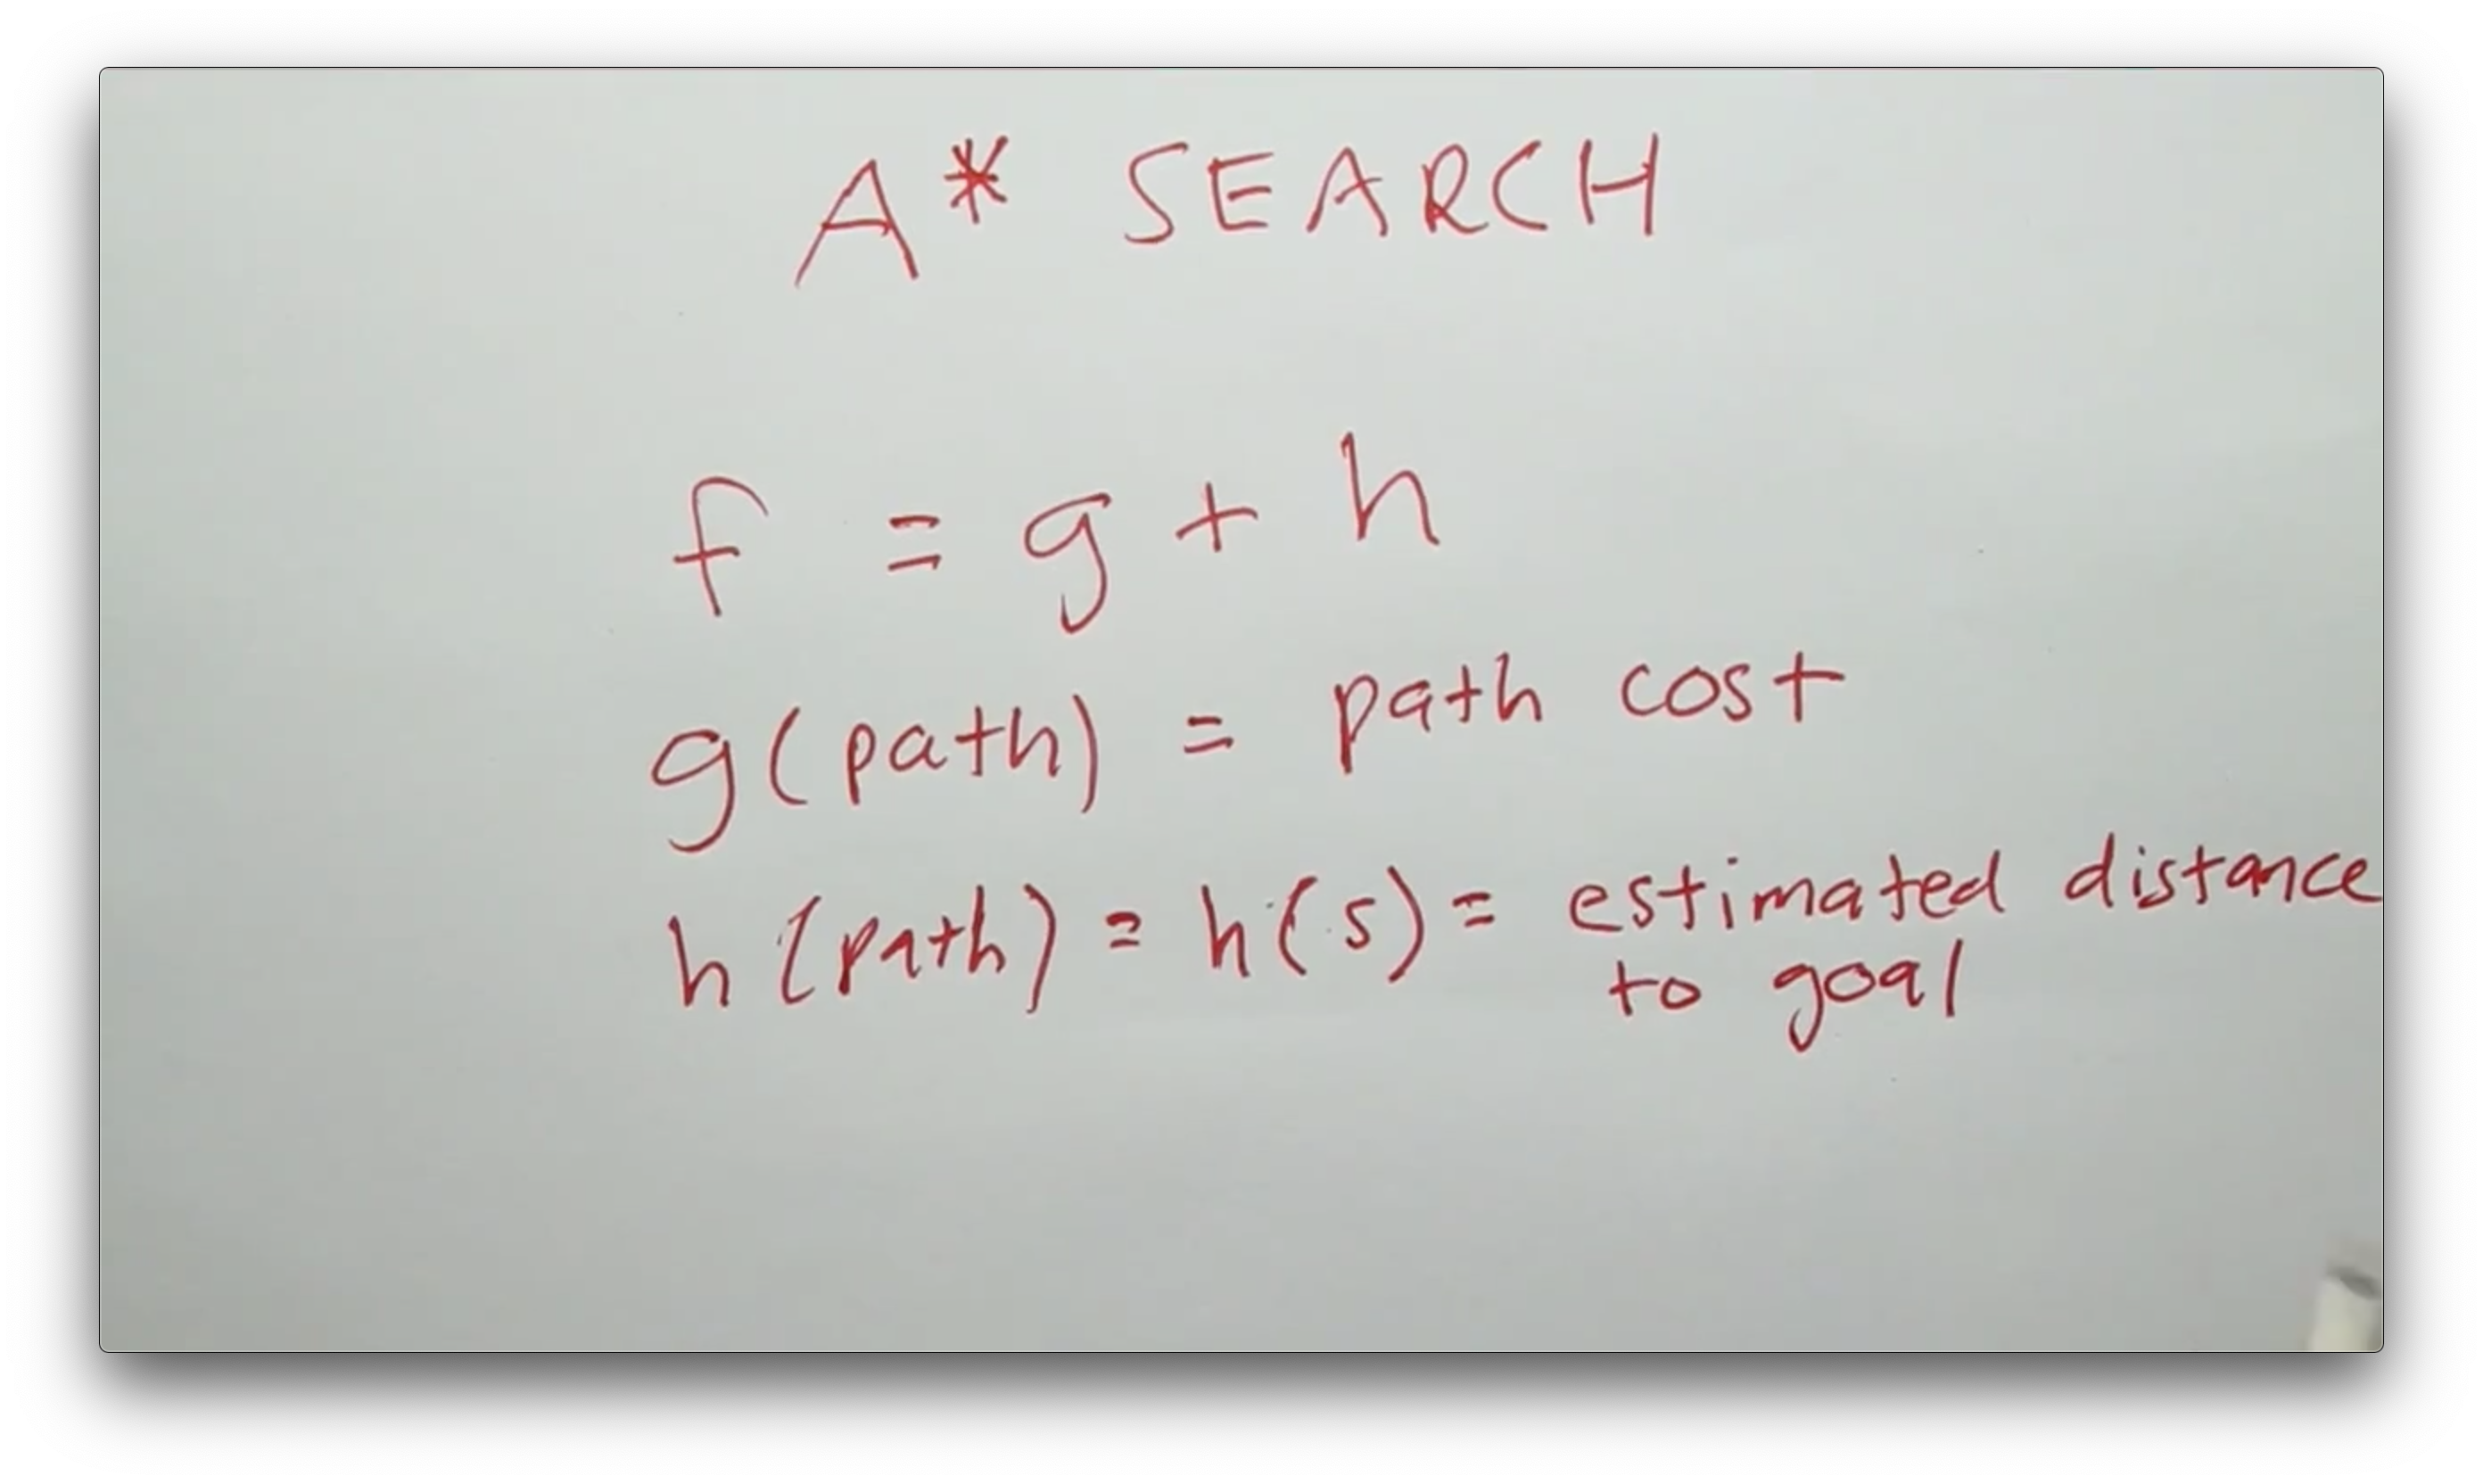 A* SEARCH
f = g + h
g(path) = path cost
h(path) = h(s) = estimated distance
to goal